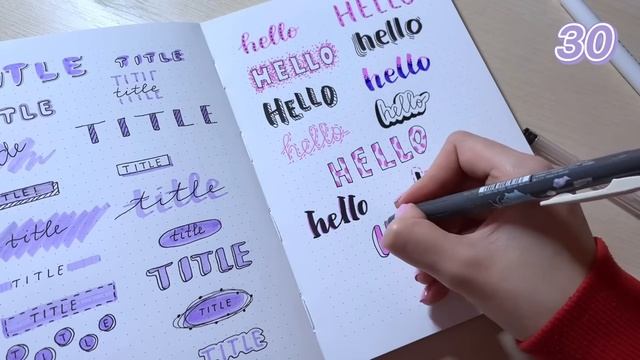 TITLE
TITLE
TITLE
title
TITLE
TITLE
TITLE
title
title
title
TITLE
TITLE
TITLE
TITLE
TITLE
TITLE
hello
HELLO
HELLO
hello
HELLO
hello
HELLO
hello
hello
HELLO
hello
30